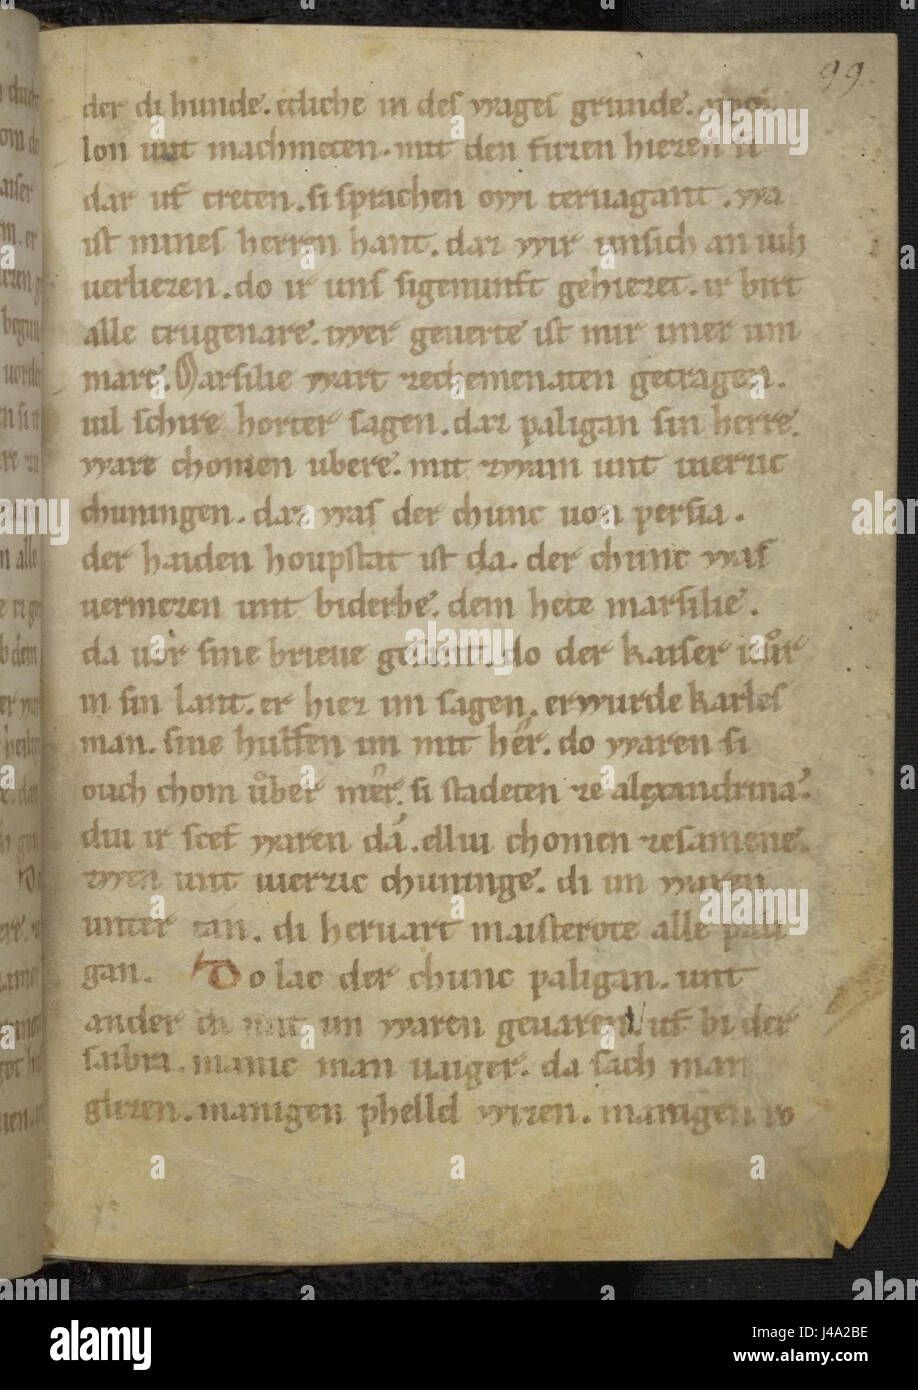 99.
der di hunde. etliche in des wages grunde. apol
lon unt machmeten. mit den fuzen hiezen si
dar uf treten. si sprachen owi teruagant. wa
ist mines herren hant. daz wir unsich an iuh
uerliezen. do ir uns sigenunft gehiezet. ir birt
alle trugenare. iwer geuerte ist mir imer un
mare. Marsilie wart zechemenaten getragen.
uil schire horter sagen. daz paligan sin herre.
ware chomen ubere. mit zwain unt uierzic
chuningen. daz was der chunc uon persia.
der haiden houpstat ist da. der chunc was
uermezen unt biderbe. dem hete marsilie.
da uor sine brieue gesant. do der kaiser uůr
in sin lant. er hiez im sagen. er wurde karles
man. sine hulfen im mit her. do waren si
ouch chom ůber mer. si stadeten ze alexandrina.
diu ir scef waren da. elliu chomen zesamene.
zwen unt uierzic chuninge. di im waren
unter tan. di heruart maisterote alle pali
gan. Do lac der chunc paligan. unt
ander di mit im waren geuaren uf bi der
saibra. manic man uaiger. da sach man
glizen. manigen phellel wizen. manigen ro
alamy stock photo
J4A2BE
www.alamy.com